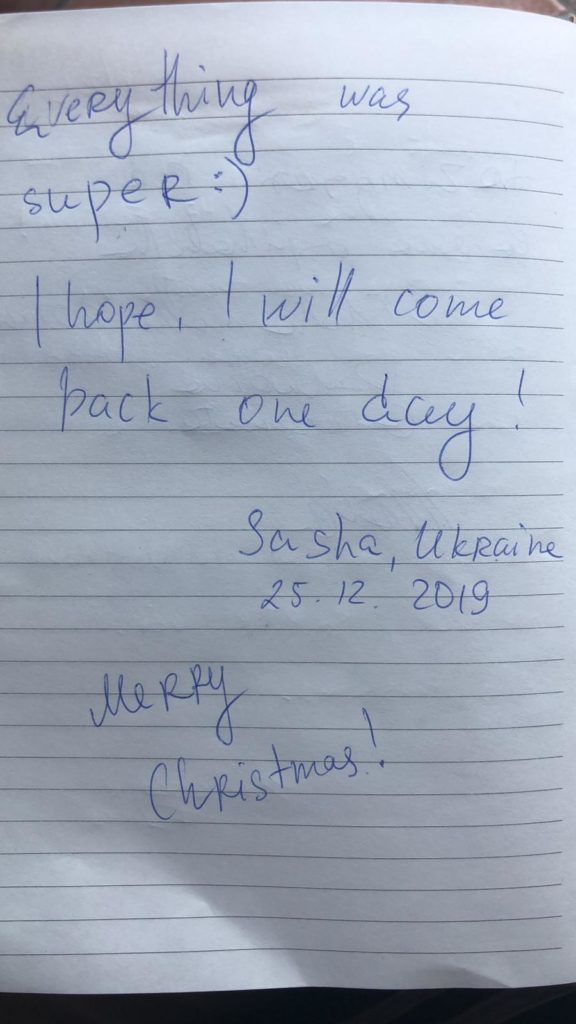 Everything was
super:)
I hope, I will come
back one day!
Sasha, Ukraine
25.12.2019
Merry
Christmas!